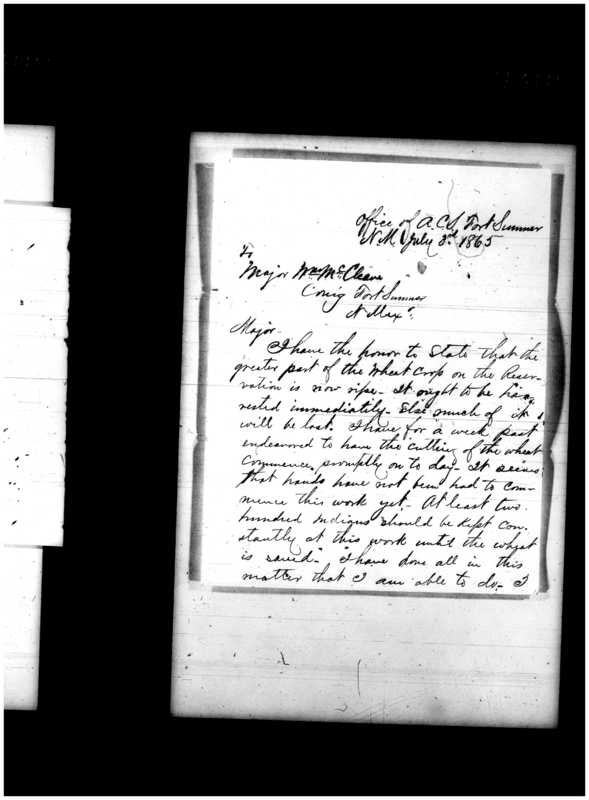 Office of A.C.S. Fort Sumner
N.M. July 3rd 1865
To
Major Wm McCleave
Com'g Fort Sumner
N Mex.
Major-
I have the honor to state that the
greater part of the wheat crop on the Reser-
vation is now ripe- It ought to be har-
vested immediately- Else much of it
will be lost. I have for a week past
endeavored to have the cutting of the wheat
commence promptly on to day- It seems
that hands have not been had to com-
mence this work yet- At least two
hundred Indians should be kept con-
stantly at this work until the wheat
is saved- I have done all in this
matter that I am able to do- I